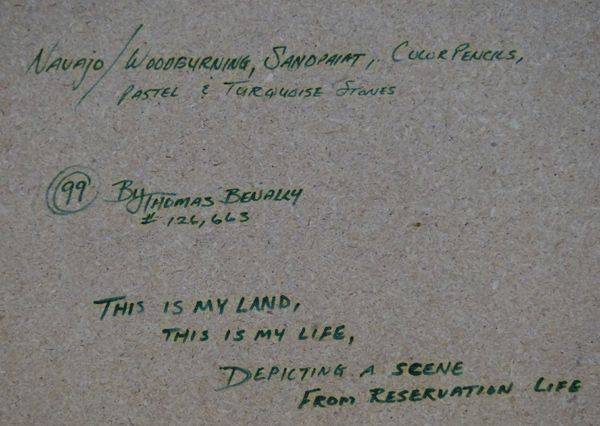 Navajo/Woodburning, Sandpaint, Color Pencils,
Pastel & Turquoise Stones
99 By Thomas Benally
# 126,663
This is my land,
This is my life,
Depicting a scene
From Reservation Life